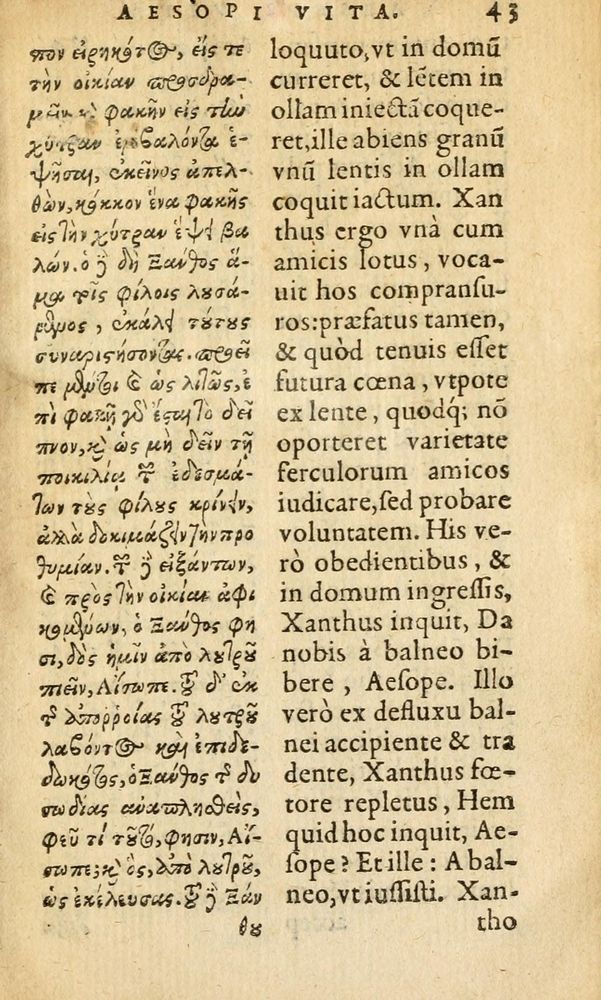 AESOPI VITA. 43
πον εἰρηκότος, εἴς τε
τὴν οἰκίαν προσδρα-
μεῖν καὶ φακῆν εἰς τὴν
χύτραν ἐμβαλόντα ἑ-
ψῆσαι, ἐκεῖνος ἀπελ-
θὼν, κόκκον ἕνα φακῆς
εἰς τὴν χύτραν ἕψει βα
λών. ὁ δὲ δὴ Ξάνθος ἅ-
μα τοῖς φίλοις λουσά-
μενος, ἐκάλει τούτους
συναριστήσοντας. προεῖ
πε μέντοι καὶ ὡς λιτῶς, ἐ
πὶ φακῇ γὰρ ἔσται τὸ δεῖ
πνον, καὶ ὡς μὴ δεῖν τῇ
ποικιλίᾳ τῶν ἐδεσμά-
των τοὺς φίλους κρίνειν,
ἀλλὰ δοκιμάζειν τὴν προ
θυμίαν. τῶν δὲ εἰξάντων,
καὶ πρὸς τὴν οἰκίαν ἀφι
κομένων, ὁ Ξάνθος φη
σι, δὸς ἡμῖν ἀπὸ λουτροῦ
πιεῖν, Αἴσωπε. τοῦ δ' ἐκ
τῆς ἀπορροίας τοῦ λουτροῦ
λαβόντος καὶ ἐπιδε-
δωκότος, ὁ Ξάνθος τῆς δυ
σωδίας ἀναπλησθεὶς,
φεῦ τί τοῦτο, φησιν, Αἴ-
σωπε; καὶ ὃς, ἀπὸ λουτροῦ,
ὡς ἐκέλευσας. τοῦ δὲ Ξάν
θου
loquuto, vt in domũ
curreret, & lẽtem in
ollam iniectã coque-
ret, ille abiens granũ
vnũ lentis in ollam
coquit iactum. Xan
thus ergo vnà cum
amicis lotus, voca-
uit hos compransu-
ros: præfatus tamen,
& quòd tenuis esset
futura cœna, vtpote
ex lente, quodq́; nõ
oporteret varietate
ferculorum amicos
iudicare, sed probare
voluntatem. His ve-
rò obedientibus, &
in domum ingressis,
Xanthus inquit, Da
nobis à balneo bi-
bere, Aesope. Illo
verò ex defluxu bal-
nei accipiente & tra
dente, Xanthus fœ-
tore repletus, Hem
quid hoc inquit, Ae-
sope? Et ille: A bal-
neo, vt iussisti. Xan-
tho